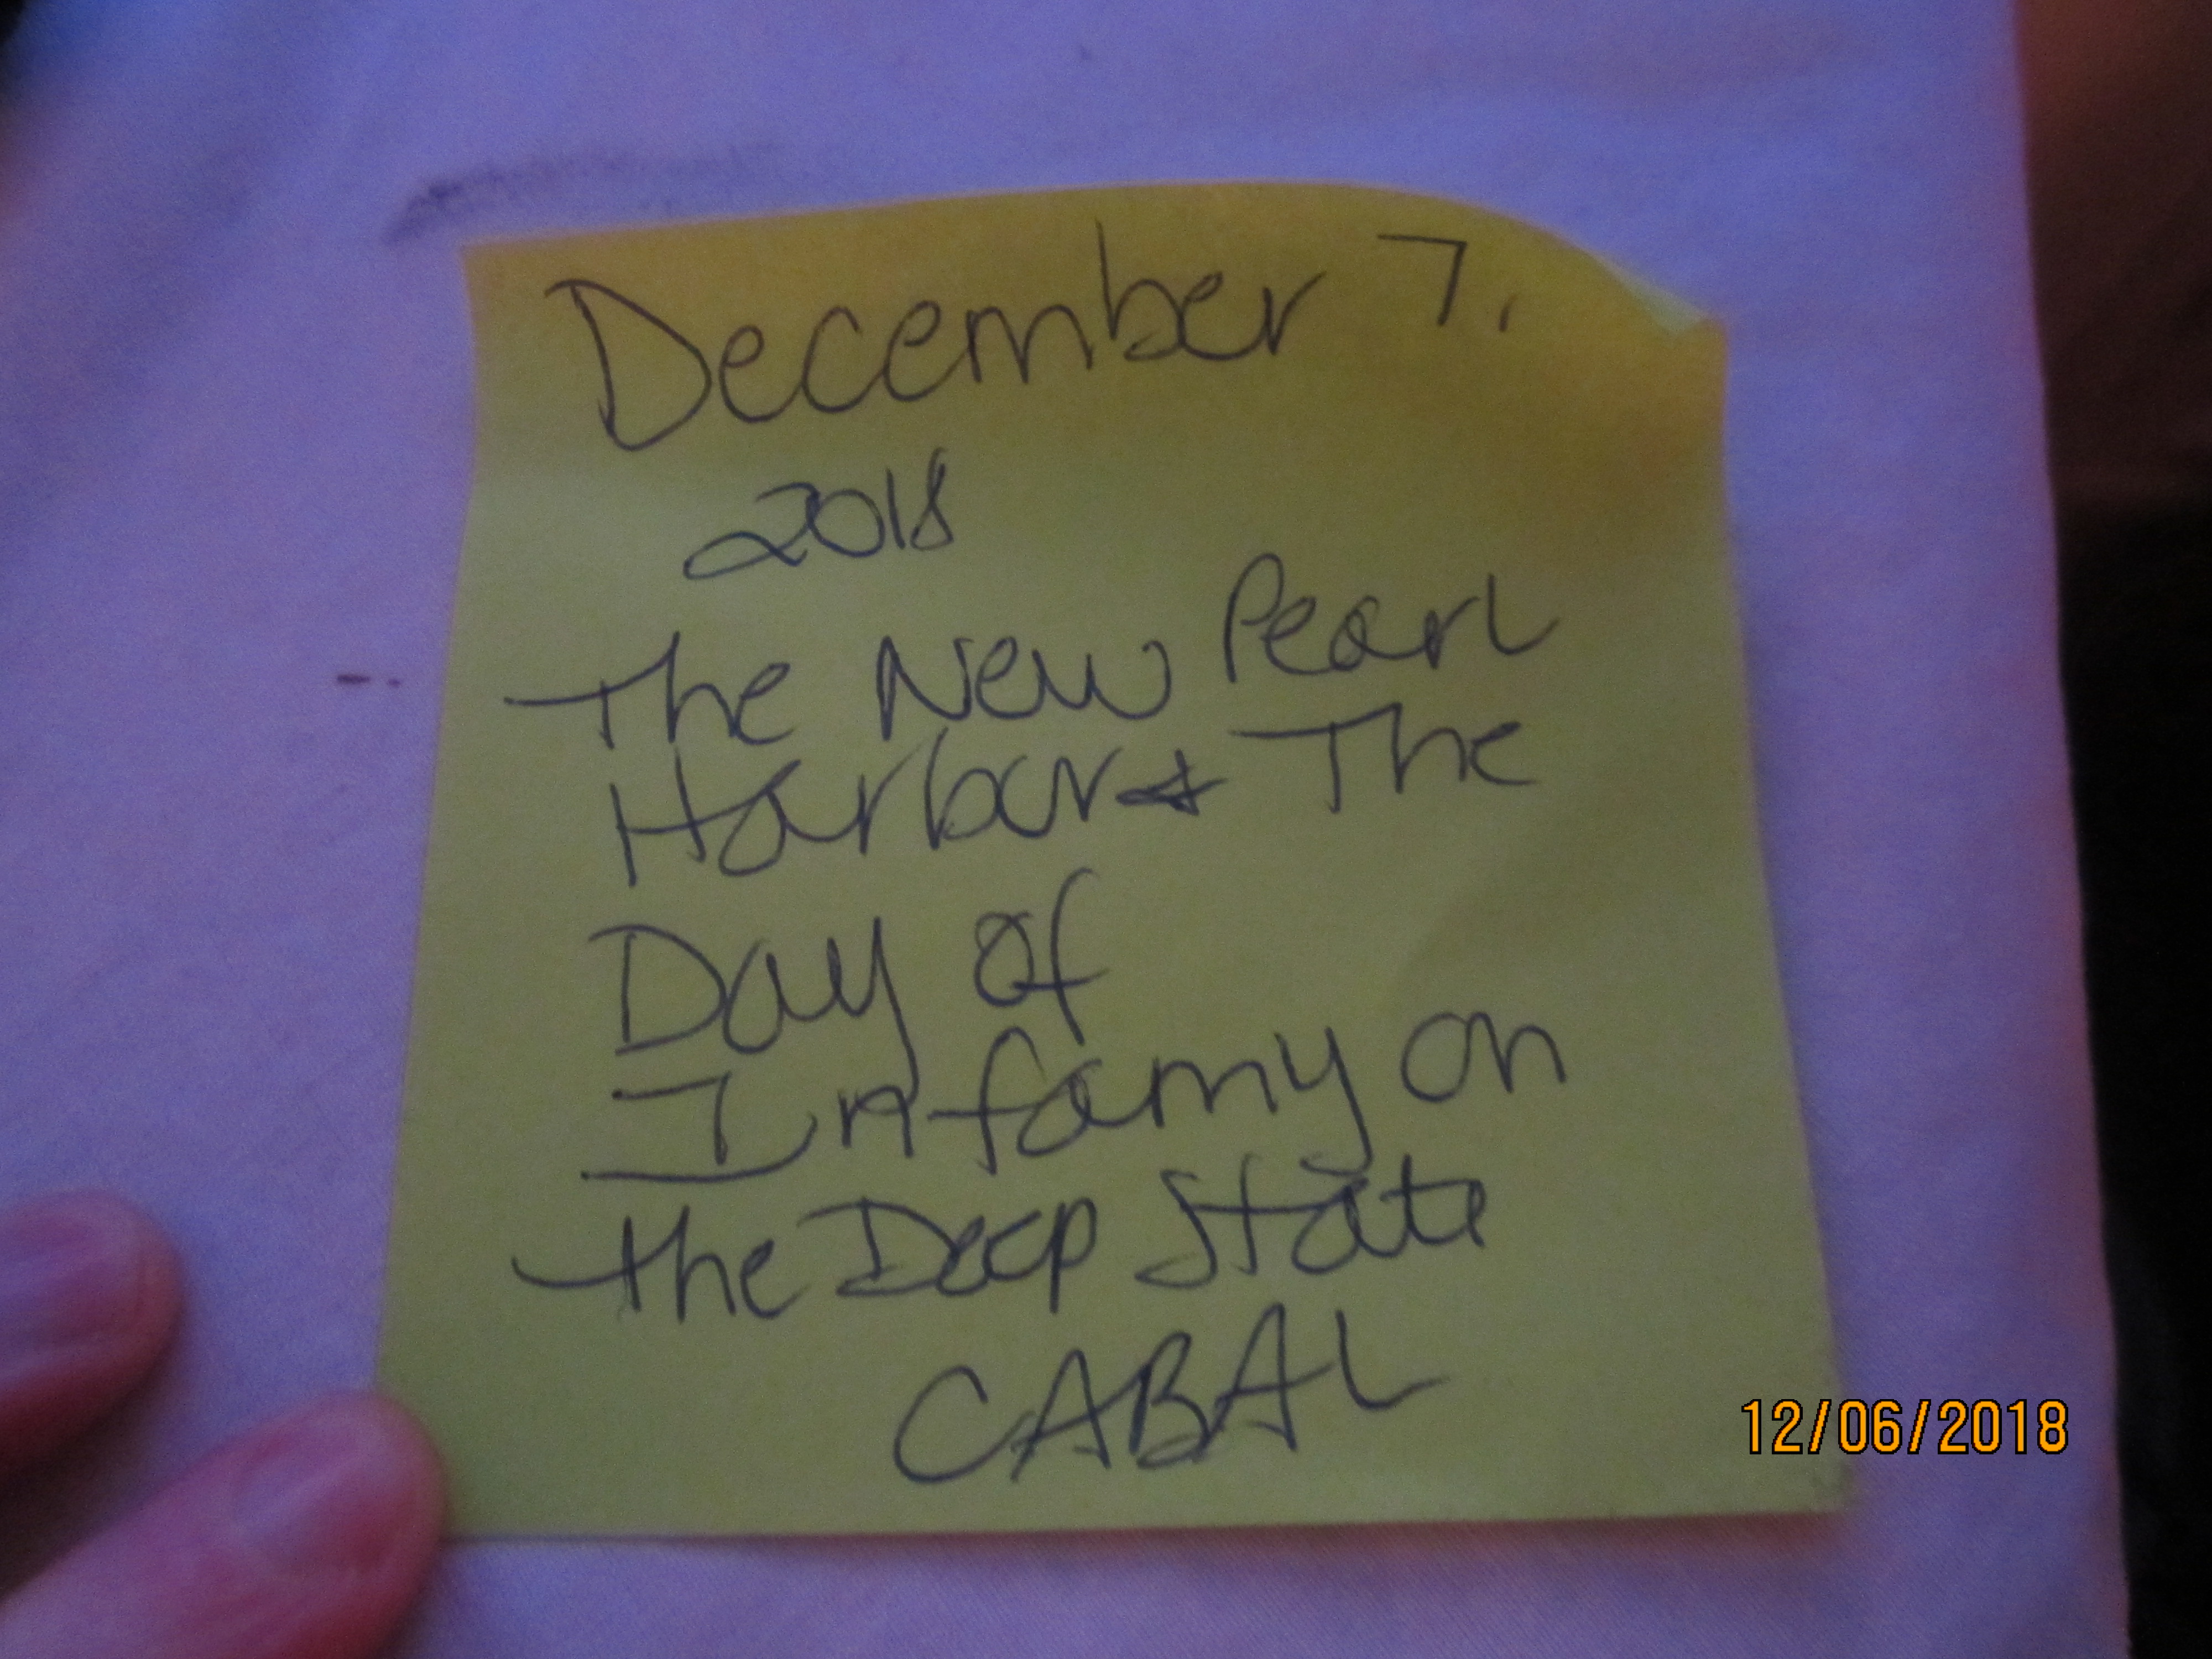 December 7,
2018
The New Pearl
Harbor & The
Day of
Infamy on
the Deep State
CABAL
12/06/2018